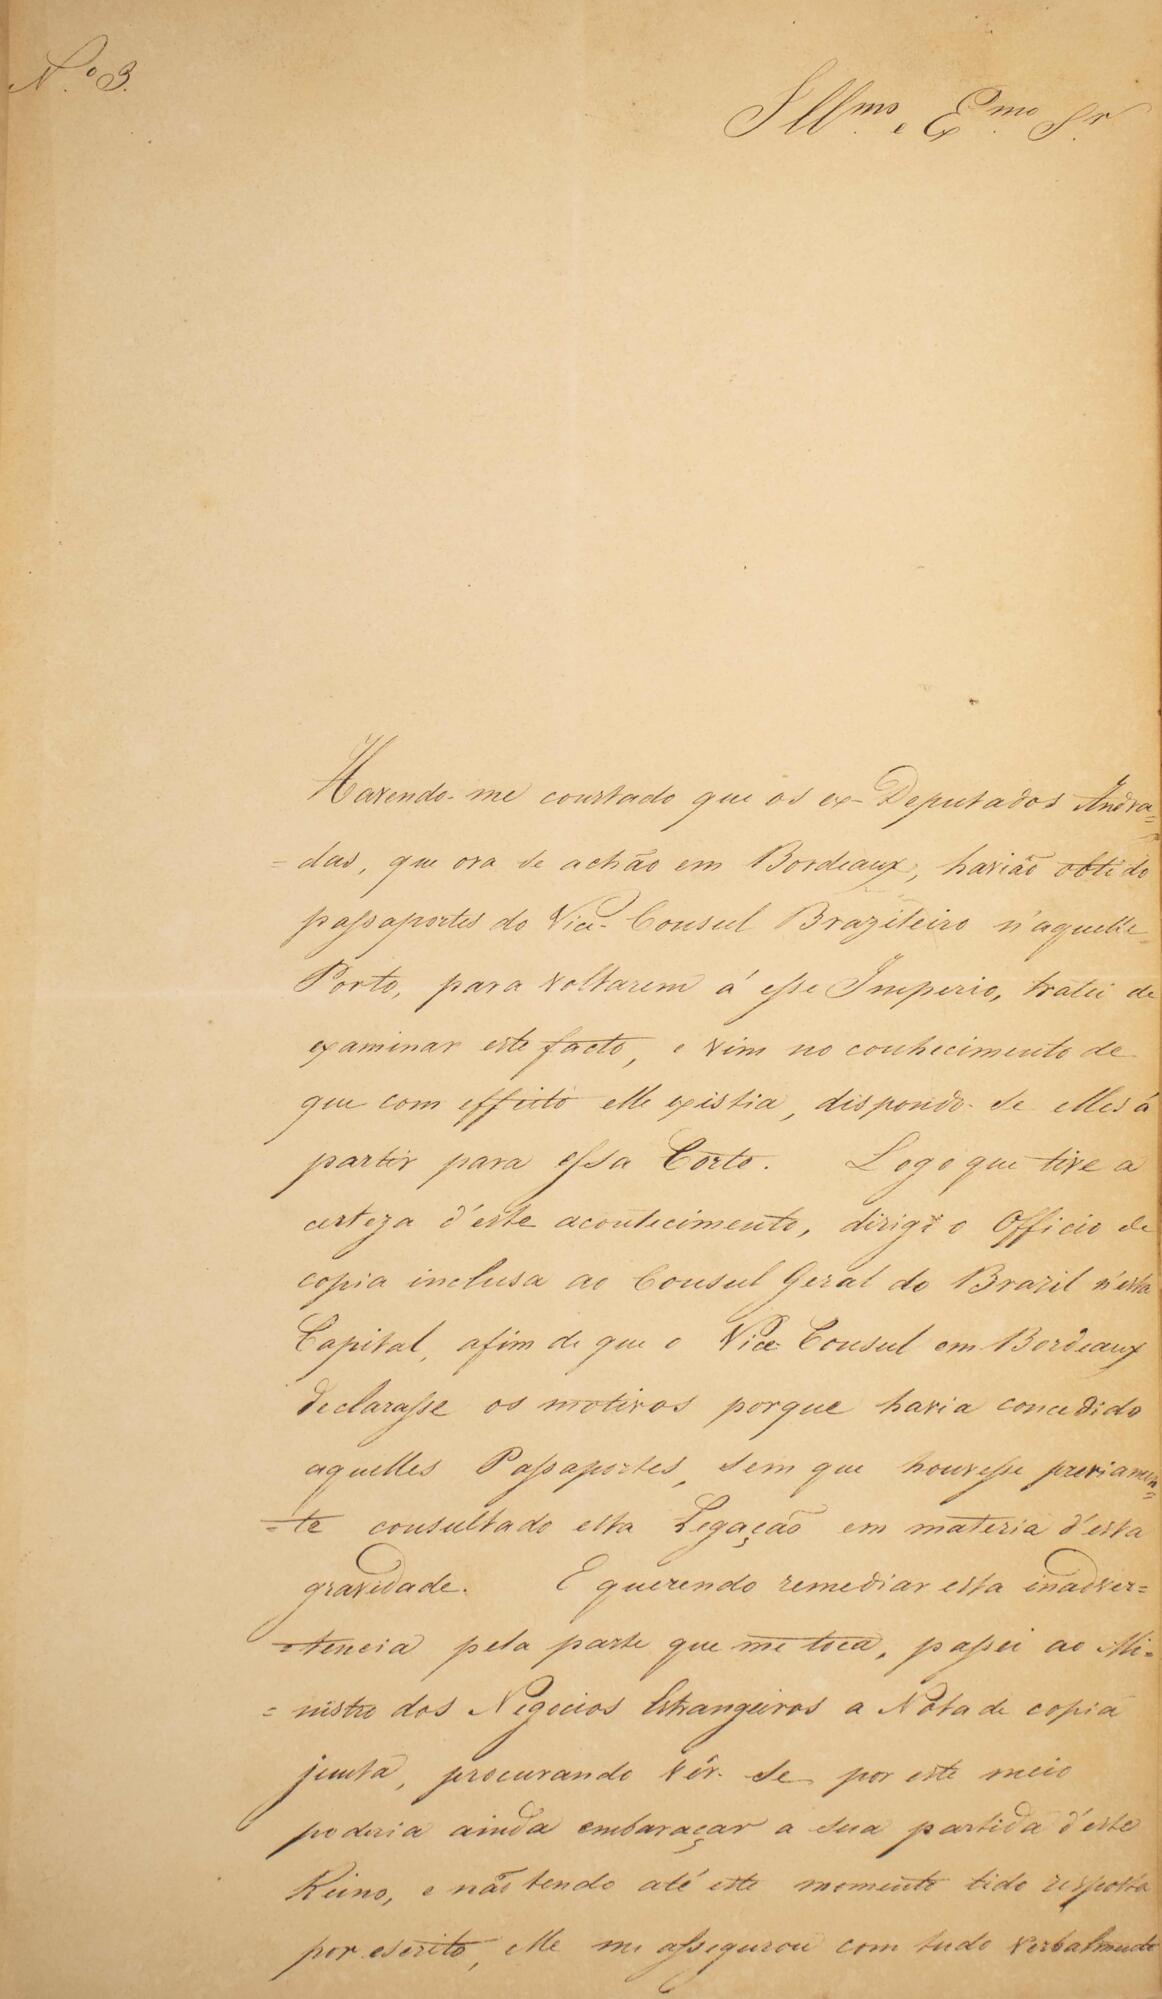 N.º 3.
Ill.mo e Ex.mo Sr.
Havendo-me constado que os ex-Deputados Andra=
=das, que ora se achão em Bordeaux, havião obtido
passaportes do Vice-Consul Brazileiro n'aquelle
Porto, para voltarem á esse Imperio, tratei de
examinar este facto, e vim no conhecimento de
que com effeito elle existia, dispondo-se elles á
partir para essa Corte. Logo que tive a
certeza d'este acontecimento, dirigi o Officio de
copia inclusa ao Consul Geral do Brazil n'esta
Capital, afim de que o Vice Consul em Bordeaux
declarasse os motivos porque havia concedido
aquelles Passaportes, sem que houvesse previamen=
=te consultado esta Legação em materia d'esta
gravidade. E querendo remediar esta inadver=
=tencia pela parte que me toca, passei ao Mi=
=nistro dos Negocios Estrangeiros a Nota de copia
junta, procurando vêr-se por este meio
poderia ainda embaraçar a sua partida d'este
Reino, e não tendo até este momento tido resposta
por escrito, elle me assegurou com tudo verbalmente